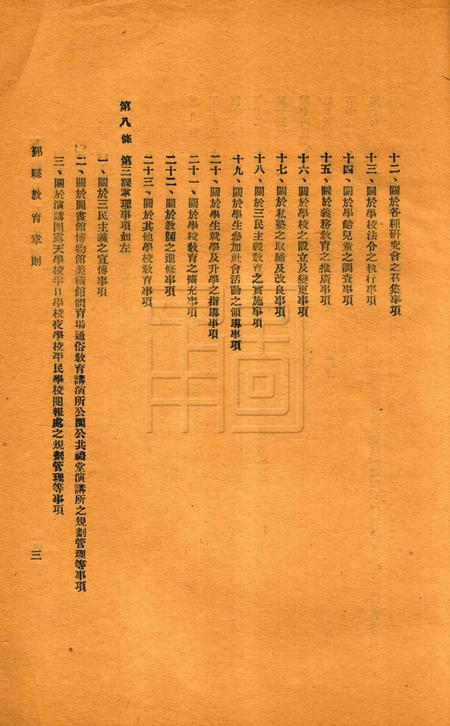 十二、關於各種研究會之召集事項
十三、關於學校法令之執行事項
十四、關於學齡兒童之調查事項
十五、關於義務教育之推廣事項
十六、關於學校之設立及變更事項
十七、關於私塾之取締及改良事項
十八、關於三民主義教育之實施事項
十九、關於學生參加社會活動之領導事項
二十、關於學生就學及升學之指導事項
二十一、關於學校教育之擴充事項
二十二、關於教員之進修事項
二十三、關於其他學校教育事項
第八條 第三課掌理事項如左
一、關於三民主義之宣傳事項
二、關於圖書館博物館美術館體育場通俗教育講演所公園公共禮堂演講所之規劃管理等事項
三、關於演講團露天學校半日學校夜學校平民學校閱報處之規劃管理等事項
縣教育章則
三